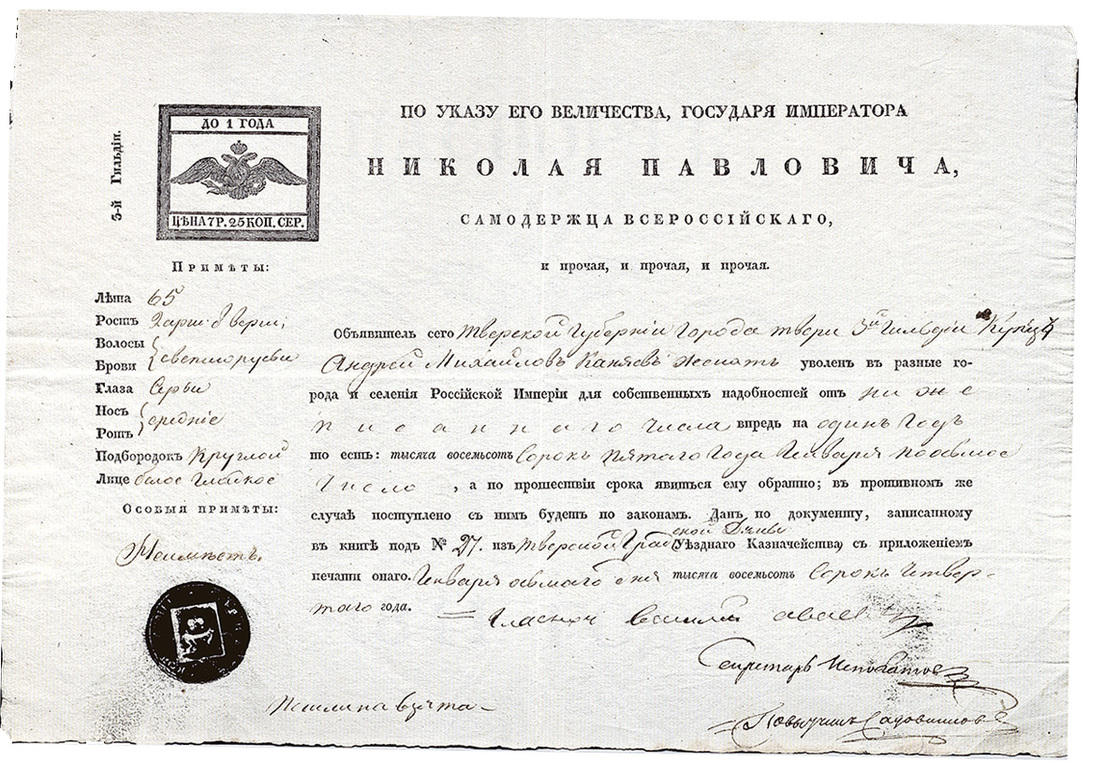 3-й Гильдіи.
ДО 1 ГОДА
ЦѢНА 7 Р. 25 КОП. СЕР.
ПО УКАЗУ ЕГО ВЕЛИЧЕСТВА, ГОСУДАРЯ ИМПЕРАТОРА
НИКОЛАЯ ПАВЛОВИЧА,
САМОДЕРЖЦА ВСЕРОССІЙСКАГО,
и прочая, и прочая, и прочая.
Примѣты:
Лѣта 65
Ростъ
Волосы
Брови светлорусыи
Глаза Серыи
Носъ
Ротъ средніе
Подбородокъ Круглой
Лице белое гладкое
Особыя примѣты:
Неимѣетъ.
Объявитель сего Тверской Губерніи города твери 3й гильдіи Купецъ
Андрей Михайловъ Каняевъ женатъ уволен въ разные го-
рода и селенія Россійской Имперіи для собственныхъ надобностей отъ ниже
писаннаго числа впредь на одинъ годъ
то есть: тысяча восемьсотъ Сорокъ пятаго года Генваря по осьмое
Число , а по прошествіи срока явиться ему обратно; въ противномъ же
случаѣ поступлено съ нимъ будетъ по законамъ. Данъ по документу, записанному
въ книгѣ подъ № 27. изъ тверской Градской Думы Уѣзднаго Казначейства, съ приложеніемъ
печати онаго. Генваря осмаго дня тысяча восемьсотъ Сорокъ четвер-
таго года.
Гласной Василий
Секретарь
Пошлина взята
Повытчик